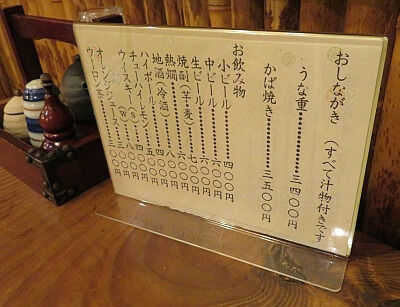 おしながき (すべて汁物付きです
うな重……………三四〇〇円
かば焼き…………三五〇〇円
お飲み物
小ビール………四〇〇円
中ビール………六〇〇円
生ビール………六〇〇円
焼酎(芋・麦)…七〇〇円
熱燗
地酒(冷酒)
ハイボール
チューハイレモン
ウィスキー(S)
(W)
オレンジジュース
ウーロン茶………三〇〇円